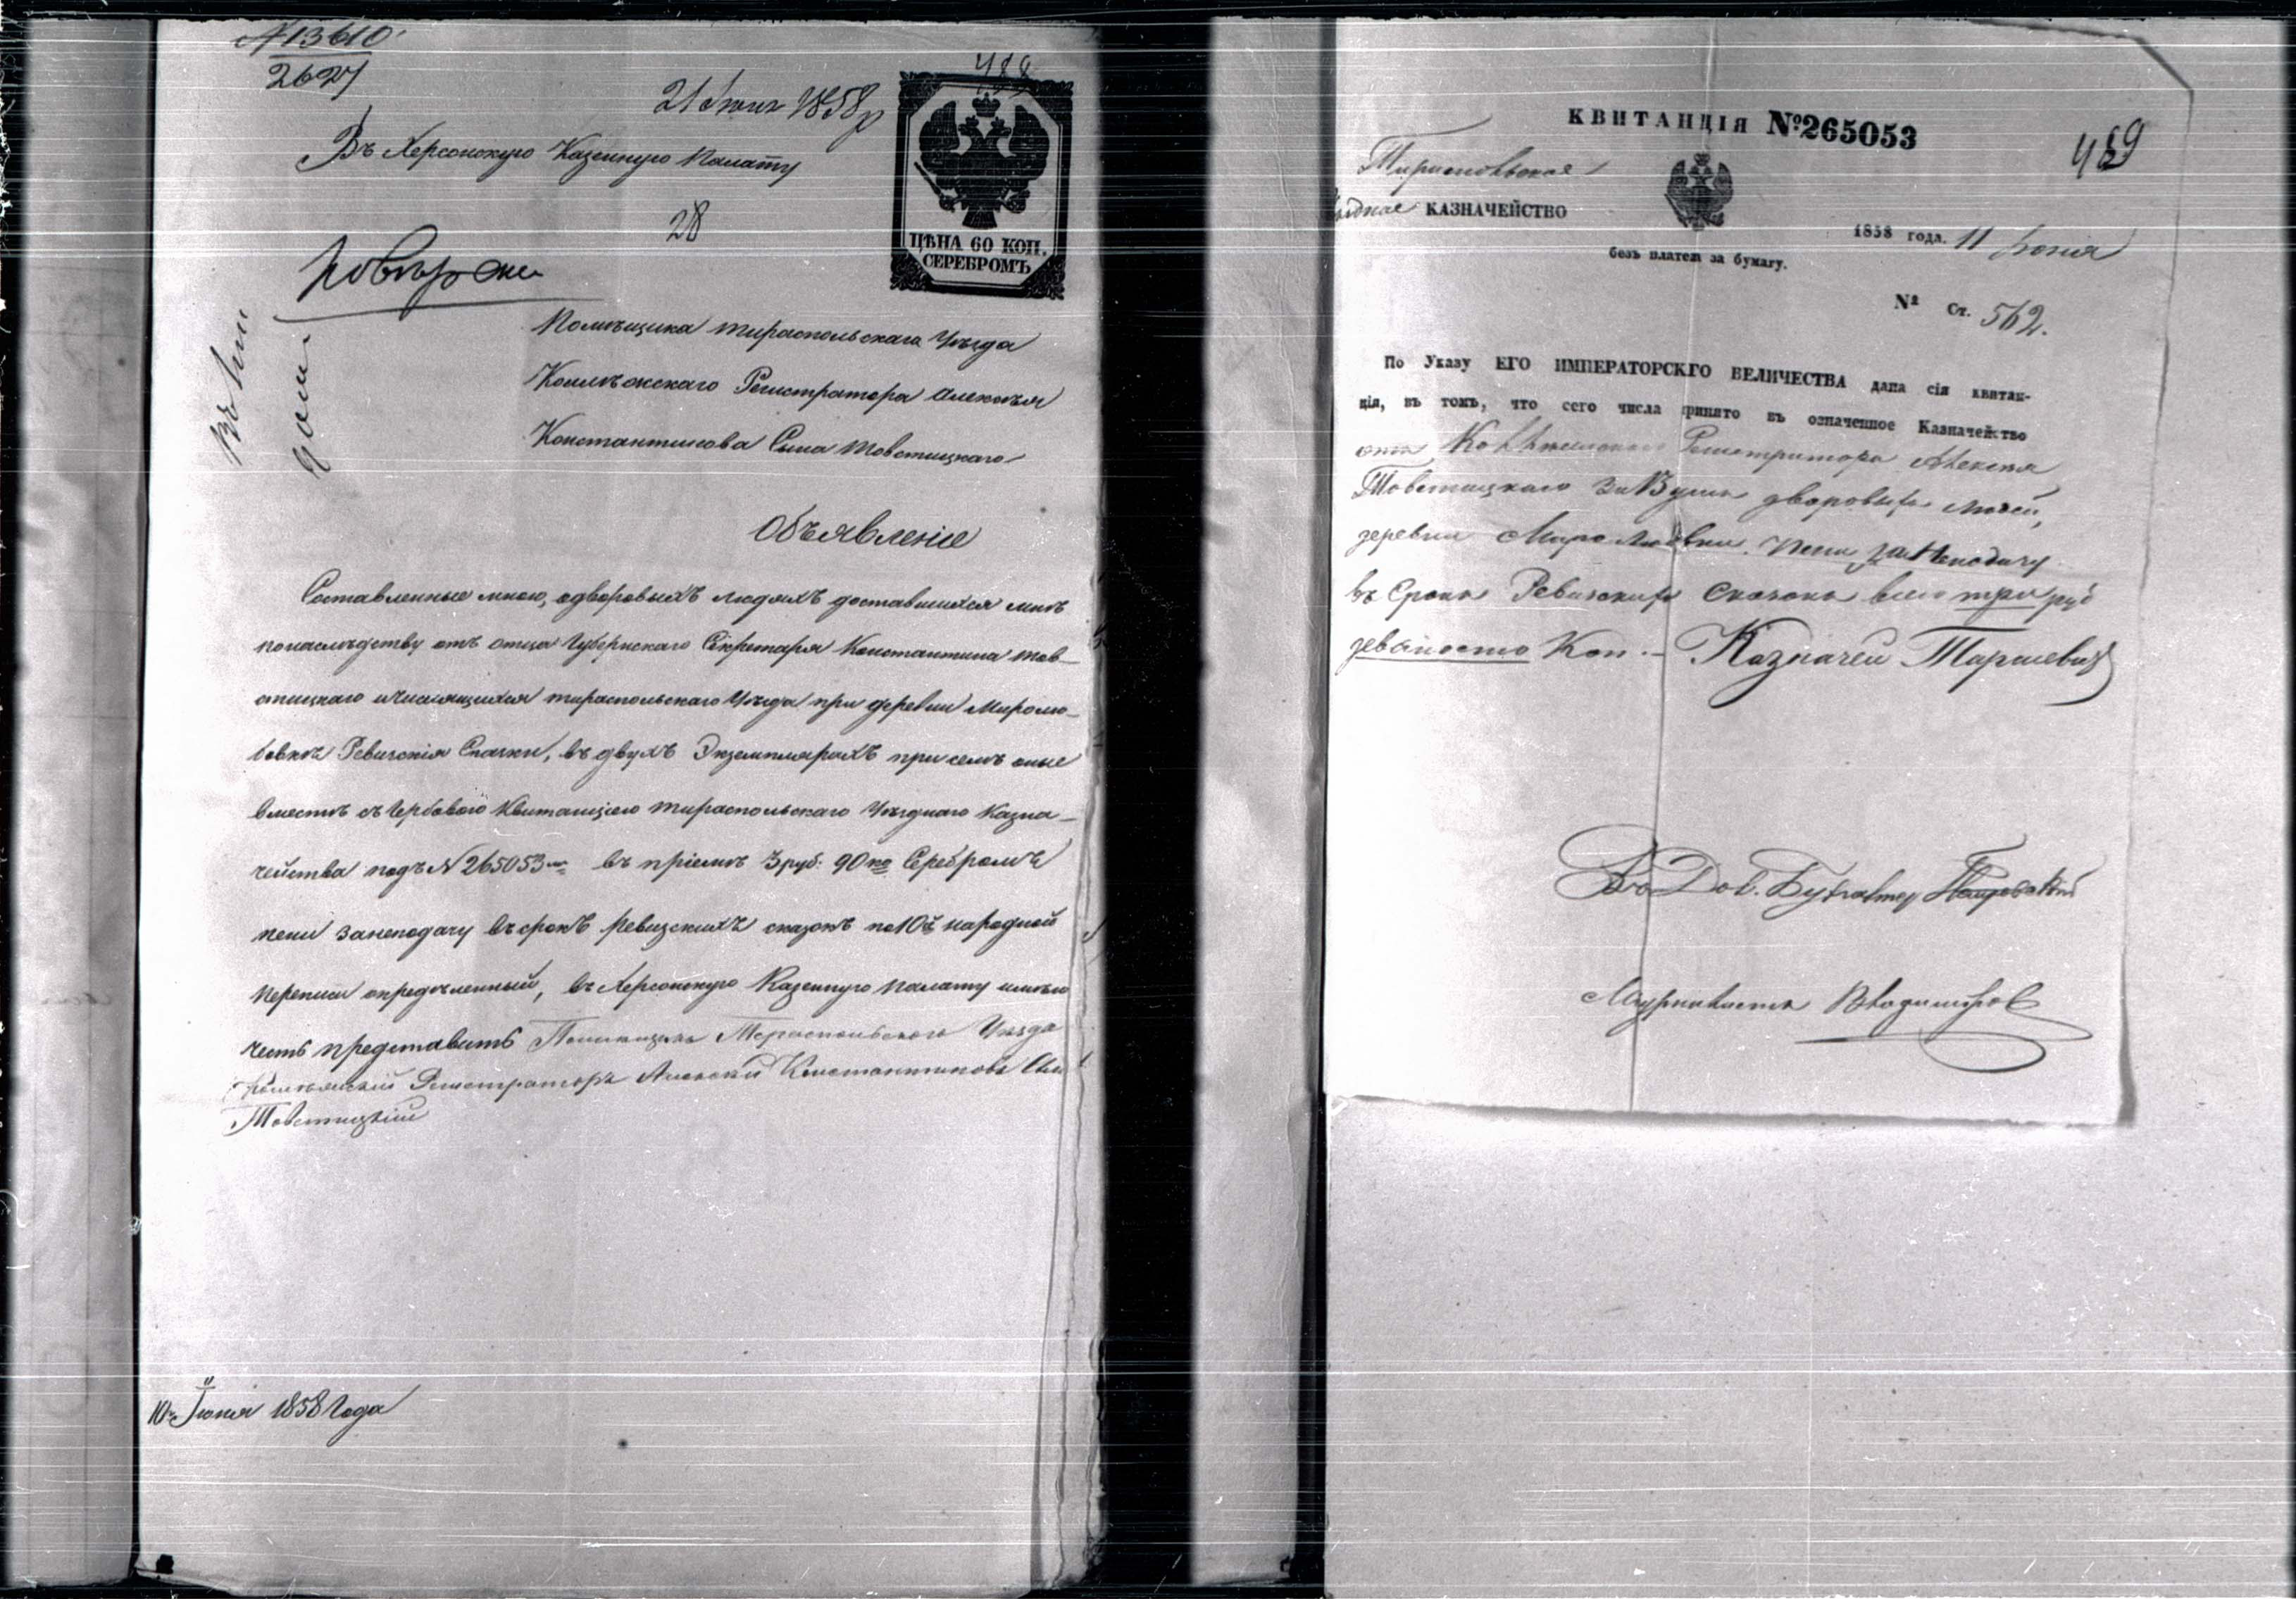 N 13610
2627
21 Іюня 1858 г
488
Въ Херсонскую Казенную Палату
28
ЦѢНА 60 КОП.
СЕРЕБРОМЪ
Помѣщика тираспольскаго Уѣзда
Коллѣжскаго Регистратора Алексѣя
Константинова Сына Товстицкаго
Объявленіе
Составленные мною, одворовыхъ людяхъ доставшихся мнѣ
понаслѣдству отъ отца Губернскаго Секретаря Константина Тов-
стицкаго ичислящихся тираспольскаго Уѣзда при деревни Миролю-
бовкѣ Ревизскія Сказки, въ двухъ Экземплярахъ при семъ оные
вместѣ съ Гербовою Квитанціею тираспольскаго Уѣзднаго Казна-
чейства подъ N 265053 въ пріемѣ 3 руб: 90 ко Серебромъ
пени занеподачу въ срокъ Ревизскихъ сказокъ по 10й народной
переписи определенный, въ Херсонскую Казенную палату имѣю
честь представить Помѣщикъ Тераспольского Уѣзда
Колѣжскій Регистраторъ Алексѣй Константиновъ Сынъ
Товстицкій
10 Іюня 1858 Года
КВИТАНЦІЯ №265053
489
Тираспольское
Уѣздное КАЗНАЧЕЙСТВО
1858 года. 11 Іюня
безъ платежа за бумагу.
№ Ст. 562.
По Указу ЕГО ИМПЕРАТОРСКГО ВЕЛИЧЕСТВА дана сія квитан-
ція, въ томъ, что сего числа принято въ означенное Казначейство
отъ Коллежскаго Регистратора Алексѣя
Товстицкаго за дворовыхъ людей,
деревни Миролюбвки. Пени за Неподачу
въ Срокъ Ревизскихъ Сказокъ всего три руб
девяносто Коп. - Казначей Тарасевичъ
Бухгалтер
Журналистъ Владимиров